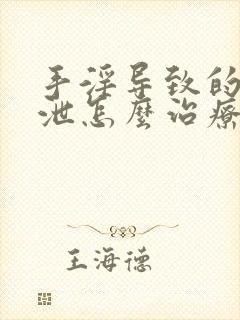 手淫导致的
泄怎麼治療
王海德